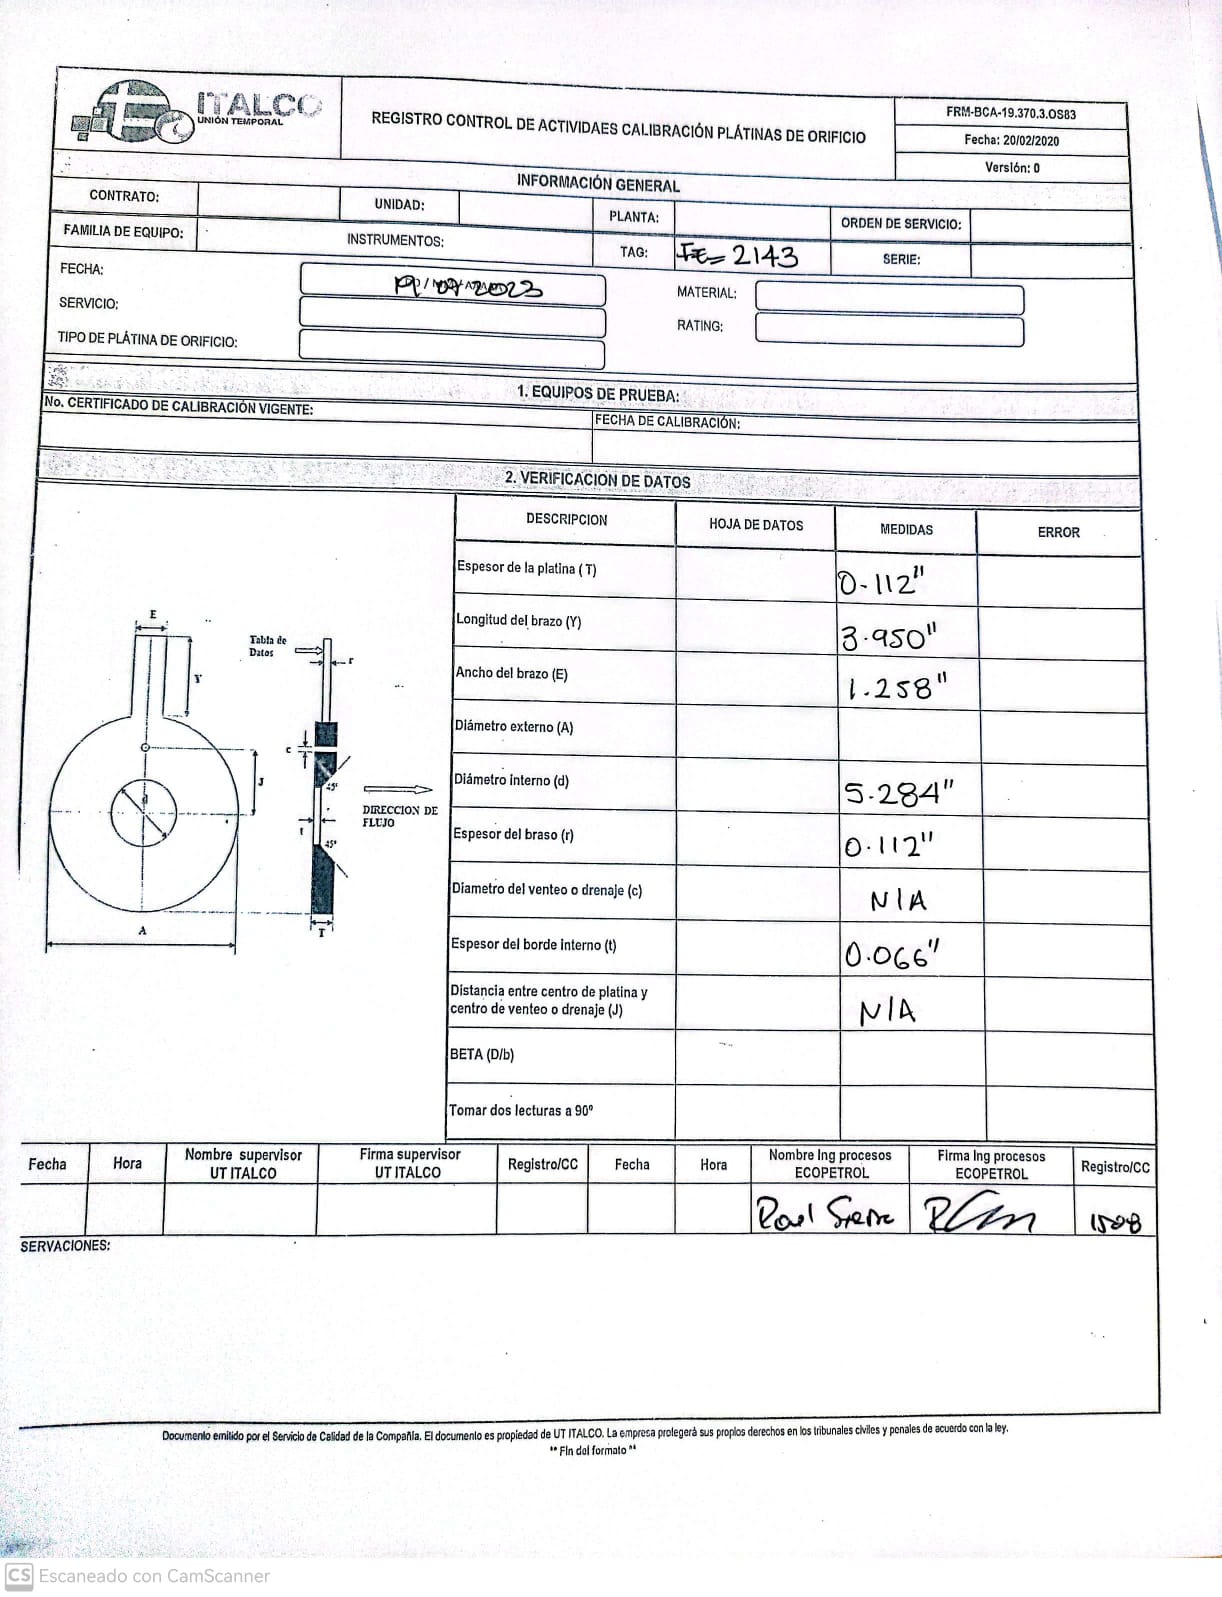 ITALCO
UNIÓN TEMPORAL
REGISTRO CONTROL DE ACTIVIDAES CALIBRACIÓN PLÁTINAS DE ORIFICIO
FRM-BCA-19.370.3.OS83
Fecha: 20/02/2020
Versión: 0
INFORMACIÓN GENERAL
CONTRATO:
UNIDAD:
PLANTA:
ORDEN DE SERVICIO:
FAMILIA DE EQUIPO:
INSTRUMENTOS:
TAG: FE-2143
SERIE:
FECHA: 19/07/2023
MATERIAL:
SERVICIO:
RATING:
TIPO DE PLÁTINA DE ORIFICIO:
1. EQUIPOS DE PRUEBA:
No. CERTIFICADO DE CALIBRACIÓN VIGENTE:
FECHA DE CALIBRACIÓN:
2. VERIFICACION DE DATOS
DESCRIPCION HOJA DE DATOS MEDIDAS ERROR
Espesor de la platina (T) 0.112"
Longitud del brazo (Y) 3.950"
Ancho del brazo (E) 1.258"
Diámetro externo (A)
Diámetro interno (d) 5.284"
Espesor del braso (r) 0.112"
Diametro del venteo o drenaje (c) N/A
Espesor del borde interno (t) 0.066"
Distancia entre centro de platina y
centro de venteo o drenaje (J) N/A
BETA (D/b)
Tomar dos lecturas a 90º
E
Tabla de
Datos
r
Y
c
J
45º
d
DIRECCION DE
FLUJO
t
45º
A
T
Fecha Hora Nombre supervisor UT ITALCO Firma supervisor UT ITALCO Registro/CC Fecha Hora Nombre Ing procesos ECOPETROL Firma Ing procesos ECOPETROL Registro/CC
Raul Sierra 1508
SERVACIONES:
Documento emitido por el Servicio de Calidad de la Compañía. El documento es propiedad de UT ITALCO. La empresa protegerá sus propios derechos en los tribunales civiles y penales de acuerdo con la ley.
** Fin del formato **
CS Escaneado con CamScanner